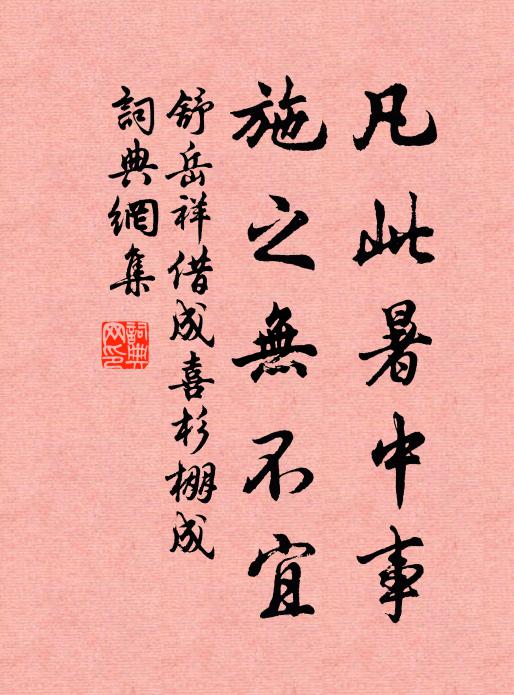 凡此暑中事
施之無不宜
舒岳祥借成喜杉棚成
詞典網集
詞典網印